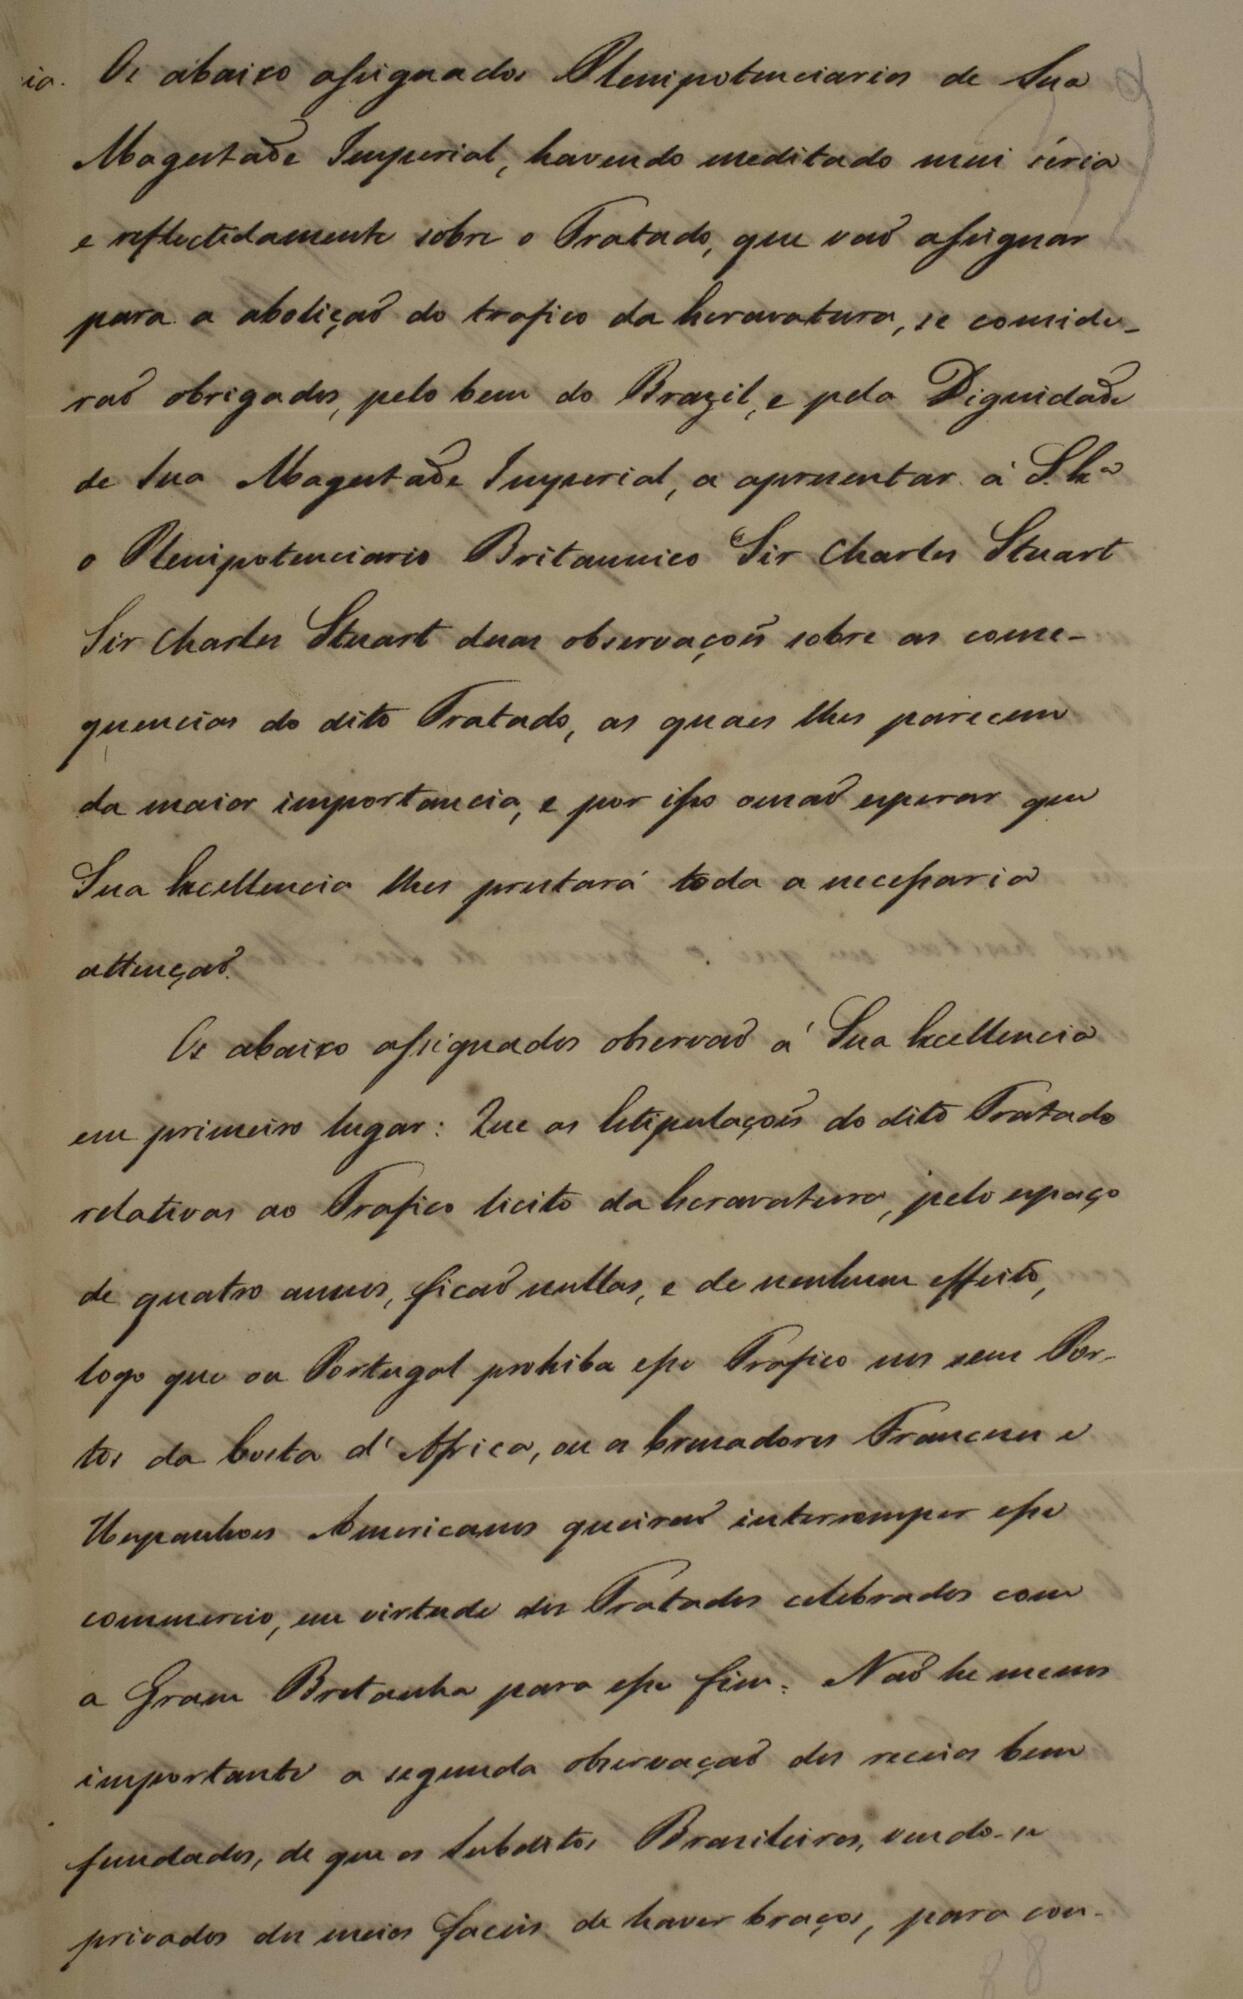 Os abaixo assignados Plenipotenciarios de Sua
Magestade Imperial, havendo meditado mui séria
e reflectidamente sobre o Tratado, que vaõ assignar
para a aboliçaõ do trafico da Escravatura, se conside-
raõ obrigados, pelo bem do Brazil, e pela Dignidade
de Sua Magestade Imperial, a apresentar á S. Exa
o Plenipotenciario Britannico Sir Charles Stuart
Sir Charles Stuart duas observaçoẽs sobre as conse-
quencias do dito Tratado, as quaes lhes parecem
da maior importancia, e por isso ousaõ esperar que
Sua Excellencia lhes prestará toda a necessaria
attençaõ.
Os abaixo assignados observaõ á Sua Excellencia
em primeiro lugar: Que as Estipulaçoẽs do dito Tratado
relativas ao Trafico licito da Escravatura, pelo espaço
de quatro annos, ficaõ nullas, e de nenhum effeito,
logo que ou Portugal prohiba esse Trafico nos seus Por-
tos da Costa d'Africa, ou os Cruzadores Francezes e
Hespanhoes Americanos queiraõ interromper esse
commercio, em virtude dos Tratados celebrados com
a Gram Bretanha para esse fim. Naõ he menos
importante a segunda observaçaõ dos receios bem
fundados, de que os Subditos Brasileiros, vendo-se
privados dos meios faceis de haver braços, para con-
88